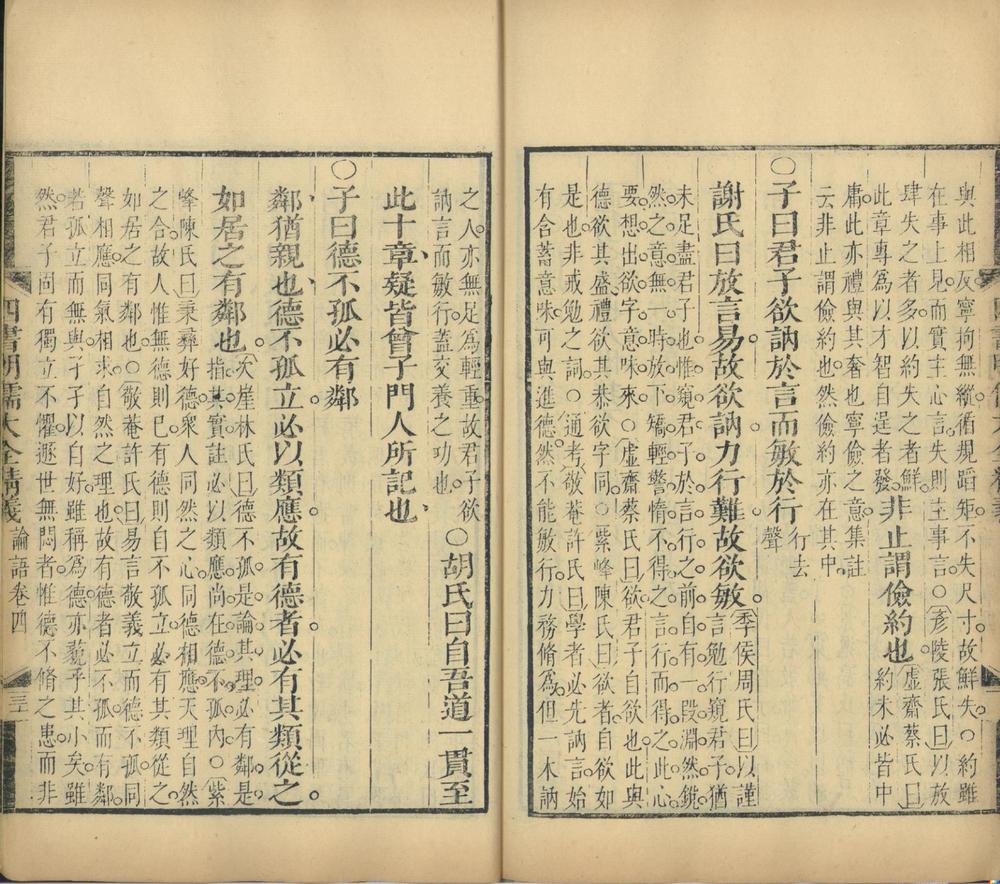 與此相反寧拘無縱循規蹈矩不失尺寸故鮮失○約雖
在事上見而實主心言失則主事言○彥陵張氏曰以放
肆失之者多以約失之者鮮非止謂儉約也虛齋蔡氏曰
此章專爲以才智自逞者發約未必皆中
庸此亦禮與其奢也寧儉之意集註
云非止謂儉約也然儉約亦在其中
○子曰君子欲訥於言而敏於行行去聲
謝氏曰放言易故欲訥力行難故欲敏季侯周氏曰以謹
言勉行窺君子猶
未足盡君子也惟窺君子於言行之前自有一段淵然鏡
然之意無一時放下矯輕警惰不得之言行而得之此心
要想出欲字意味來○虛齋蔡氏曰欲君子自欲也此與
德欲其盛禮欲其恭欲字同○紫峰陳氏曰欲者自欲如
是也非戒勉之詞○通考敬菴許氏曰學者必先訥言始
有含蓄意味可與進德然不能敏行力務脩爲但一木訥
之人亦無足爲輕重故君子欲
訥言而敏行蓋交養之功也○胡氏曰自吾道一貫至
此十章疑皆曾子門人所記也
○子曰德不孤必有鄰
鄰猶親也德不孤立必以類應故有德者必有其類從之
如居之有鄰也次崖林氏曰德不孤是論其理必有鄰是
指其實註必以類應尚在德不孤內○紫
峰陳氏曰秉彝好德衆人同然之心同德相應天理自然
之合故人惟無德則已有德則自不孤立必有其類從之
如居之有鄰也○敬菴許氏曰易言敬義立而德不孤同
聲相應同氣相求自然之理也故有德者必不孤而有鄰
若孤立而無與孑孑以自好雖稱爲德亦藐乎其小矣雖
然君子尚有獨立不懼遯世無悶者惟德不脩之患而非
四書明儒大全精義 論語卷四 三二